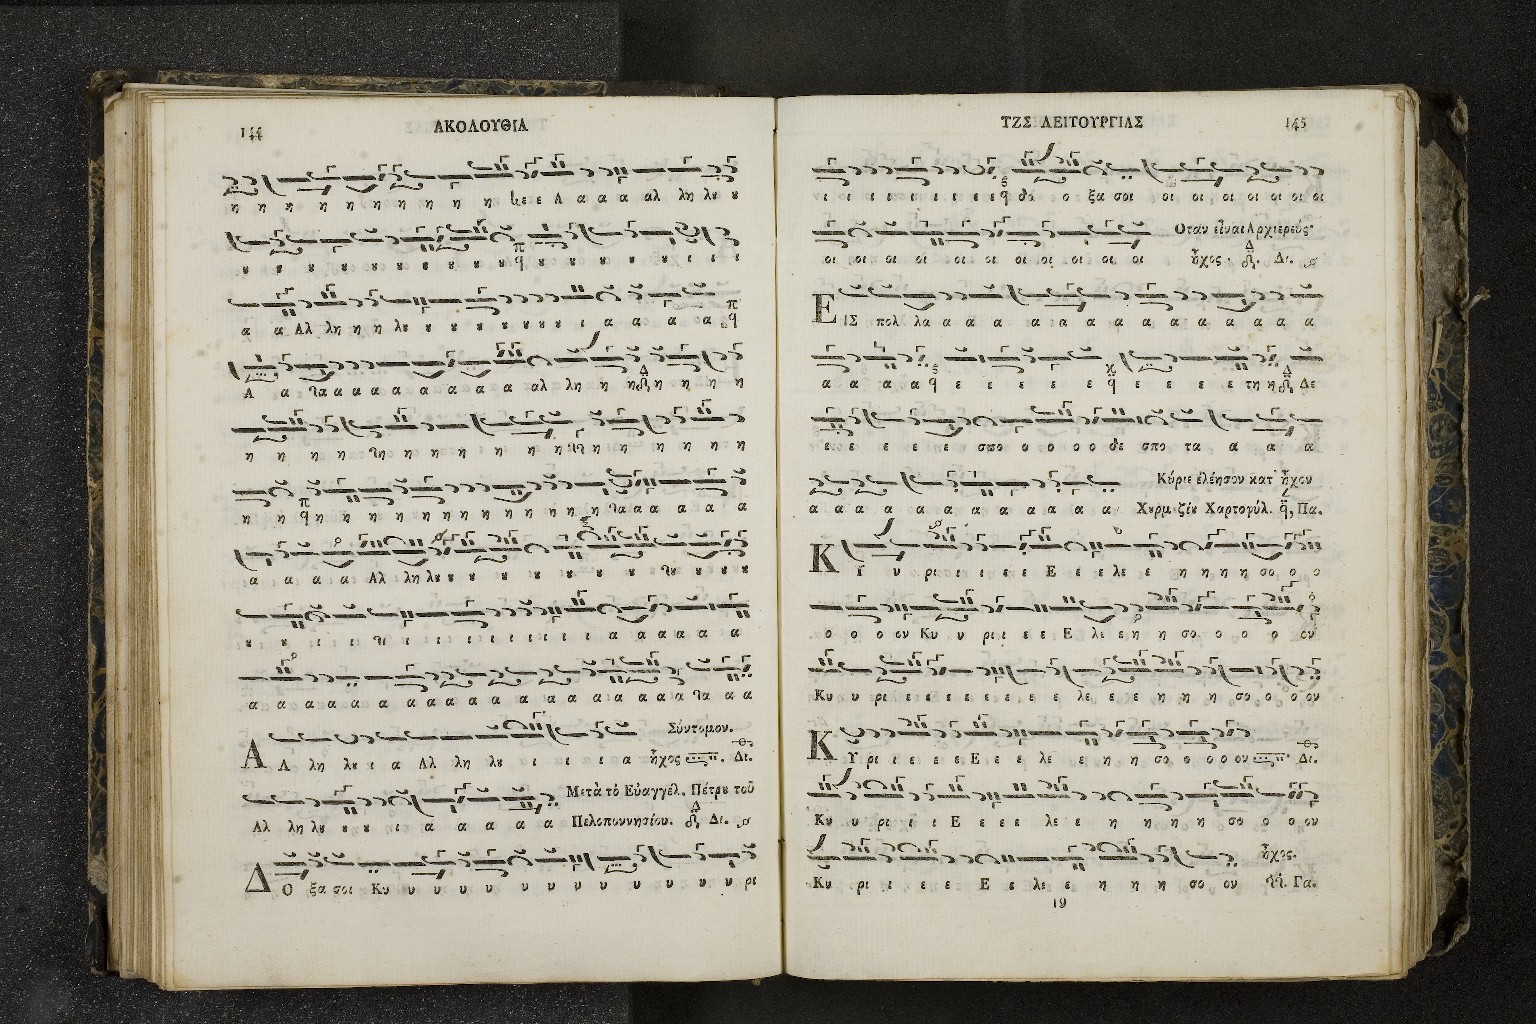 144 ΑΚΟΛΟΥΘΙΑ
η η η η η η η η η η η ε ε Α α α α αλ λη λȣ ȣ
ȣ ȣ ȣ ȣ ȣ ȣ ȣ ȣ ȣ ȣ ȣ ȣ ȣ ȣ ȣ ι ι ι
α α Αλ λη η η λȣ ȣ ȣ ȣ ȣ ȣ ȣ ȣ ȣ ι α α α α
Α α α α α α α α α α α αλ λη η η η η η η
η η η η η η η η η η η η η η η η η
η η η η η η η η η η η η η η η η α α α α α α
α α α α Αλ λη λȣ ȣ ȣ ȣ ȣ ȣ ȣ ȣ ȣ ȣ ȣ ȣ
ȣ ȣ ι ι ι ι ι ι ι ι ι ι ι ι α α α α α α
α α α α α α α α α α α α α α α α α α α α α α α α
Σύντομον.
Α Α λη λȣ ι α Αλ λη λȣ ι ι ι α ἦχος Δι.
Μετὰ τὸ Εὐαγγέλ. Πέτρȣ τοῦ
Αλ λη λȣ ȣ ȣ ι α α α α α α Πελοποννησίου. Δι.
Δ Ο ξα σοι Κυ υ υ υ υ υ υ υ υ υ υ υ υ ρι
ΤΗΣ ΛΕΙΤΟΥΡΓΙΑΣ 145
ι ι ι ι ι ι ε ε δο ο ξα σοι οι οι οι οι οι οι οι
Οταν εἶναι Αρχιερεύς·
οι οι οι οι οι οι οι οι οι οι οι οι ἦχος· Δι.
Ε ΙΣ πολ λα α α α α α α α α α α α α α α
α α α α ε ε ε ε ε ε ε ε ε τη η Δε
ε ε ε ε ε σπο ο ο ο ο δε σπο τα α α α
Κύριε ἐλέησον κατ' ἦχον
α α α α α α α α α α α α α Χȣρμȣζίȣ Χαρτοφύλ. Πα.
Κ Υ υ ρι ι ι ε ε Ε ε ε λε ε η η η η σο ο ο
ο ο ο ον Κυ υ ρι ι ε ε Ε λε ε η η σο ο ο ο ον
Κυ υ ρι ε ε ε ε ε ε ε ε λε ε ε η η η σο ο ο ον
Κ Υ ρι ι ε ε ε Ε ε ε λε ε η η σο ο ο ο ον Δι.
Κυ υ ρι ι ι Ε ε ε ε λε ε η η η η σο ο ο ον
ἦχος·
Κυ ρι ι ε ε Ε ε λε ε η η η σο ον Γα.
19